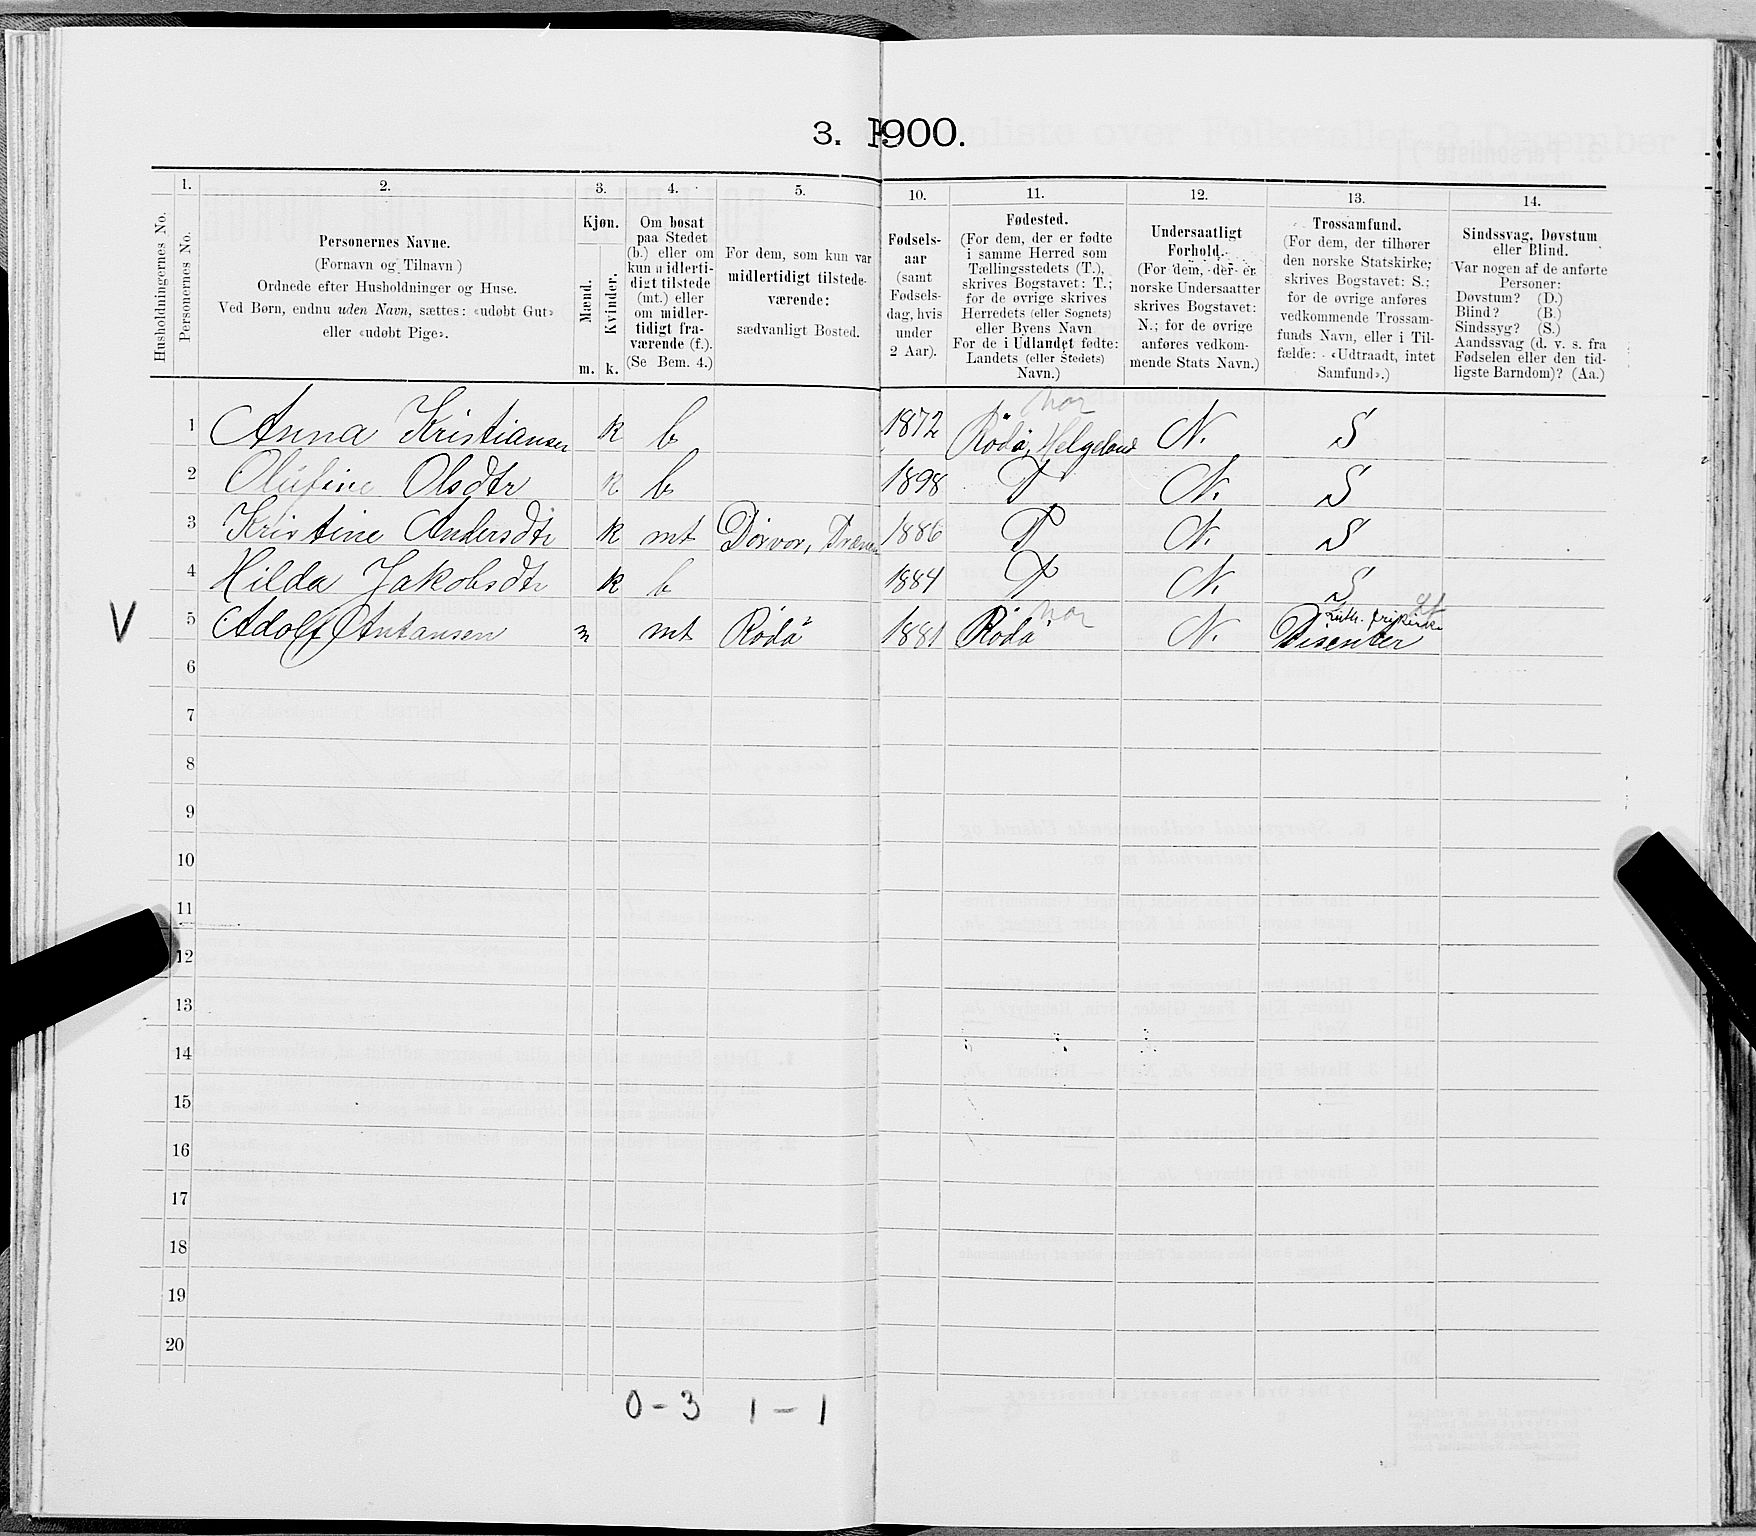 3. 1900.
1. 2. 3. 4. 5. 10. 11. 12. 13. 14.
Husholdningernes No.
Personernes No.
Personernes Navne.
(Fornavn og Tilnavn)
Ordnede efter Husholdninger og Huse.
Ved Børn, endnu uden Navn, sættes: «udøbt Gut»
eller «udøbt Pige».
Kjøn.
Mænd.
Kvinder.
m. k.
Om bosat
paa Stedet
(b.) eller om
kun midlerti-
digt tilstede
(mt.) eller
om midler-
tidigt fra-
værende (f.).
(Se Bem. 4.)
For dem, som kun var
midlertidigt tilstede-
værende:
sædvanligt Bosted.
Fødsels-
aar
(samt
Fødsels-
dag, hvis
under
2 Aar).
Fødested.
(For dem, der er fødte
i samme Herred som
Tællingsstedets (T.),
skrives Bogstavet: T.;
for de øvrige skrives
Herredets (eller Sognets)
eller Byens Navn
For de i Udlandet fødte:
Landets (eller Stedets)
Navn.)
Undersaatligt
Forhold.
(For dem, der er
norske Undersaatter
skrives Bogstavet:
N.; for de øvrige
anføres vedkom-
mende Stats Navn.)
Trossamfund.
(For dem, der tilhører
den norske Statskirke;
skrives Bogstavet: S.;
for de øvrige anføres
vedkommende Trossam-
funds Navn, eller i Til-
fælde: «Udtraadt, intet
Samfund».)
Sindssvag, Døvstum
eller Blind.
Var nogen af de anførte
Personer:
Døvstum? (D.)
Blind? (B.)
Sindssyg? (S.)
Aandssvag (d. v. s. fra
Fødselen eller den tid-
ligste Barndom)? (Aa.)
nor
1 Anna Kristiansen k b 1872 Rödö, Helgeland N. S
2 Olufine Olsdtr k b 1898 T N. S
3 Kristine Andersdtr k mt Dörvær, Træna 1886 T N. S
4 Hilda Jakobsdtr k b 1884 T N. S
nor
Luth. frikirke
V 5 Adolf Antonsen m mt Rödö 1881 Rödö N. Disenter
6
7
8
9
10
11
12
13
14
15
16
17
18
19
20
0-3 1-1